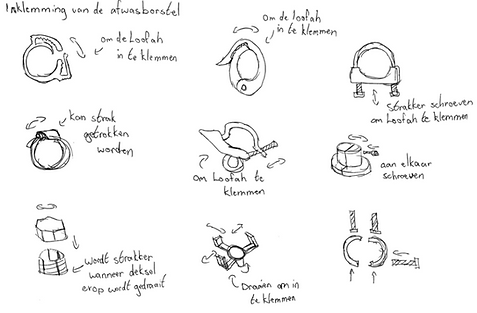 Inklemming van de afwasborstel
om de Loofah
in te klemmen
om de loofah
in te klemmen
Strakker schroeven
om Loofah te klemmen
Kan strak
getrokken
worden
om Loofah te
klemmen
aan elkaar
schroeven
Wordt strakker
wanneer deksel
erop wordt gedraait
Draaien om in
te klemmen